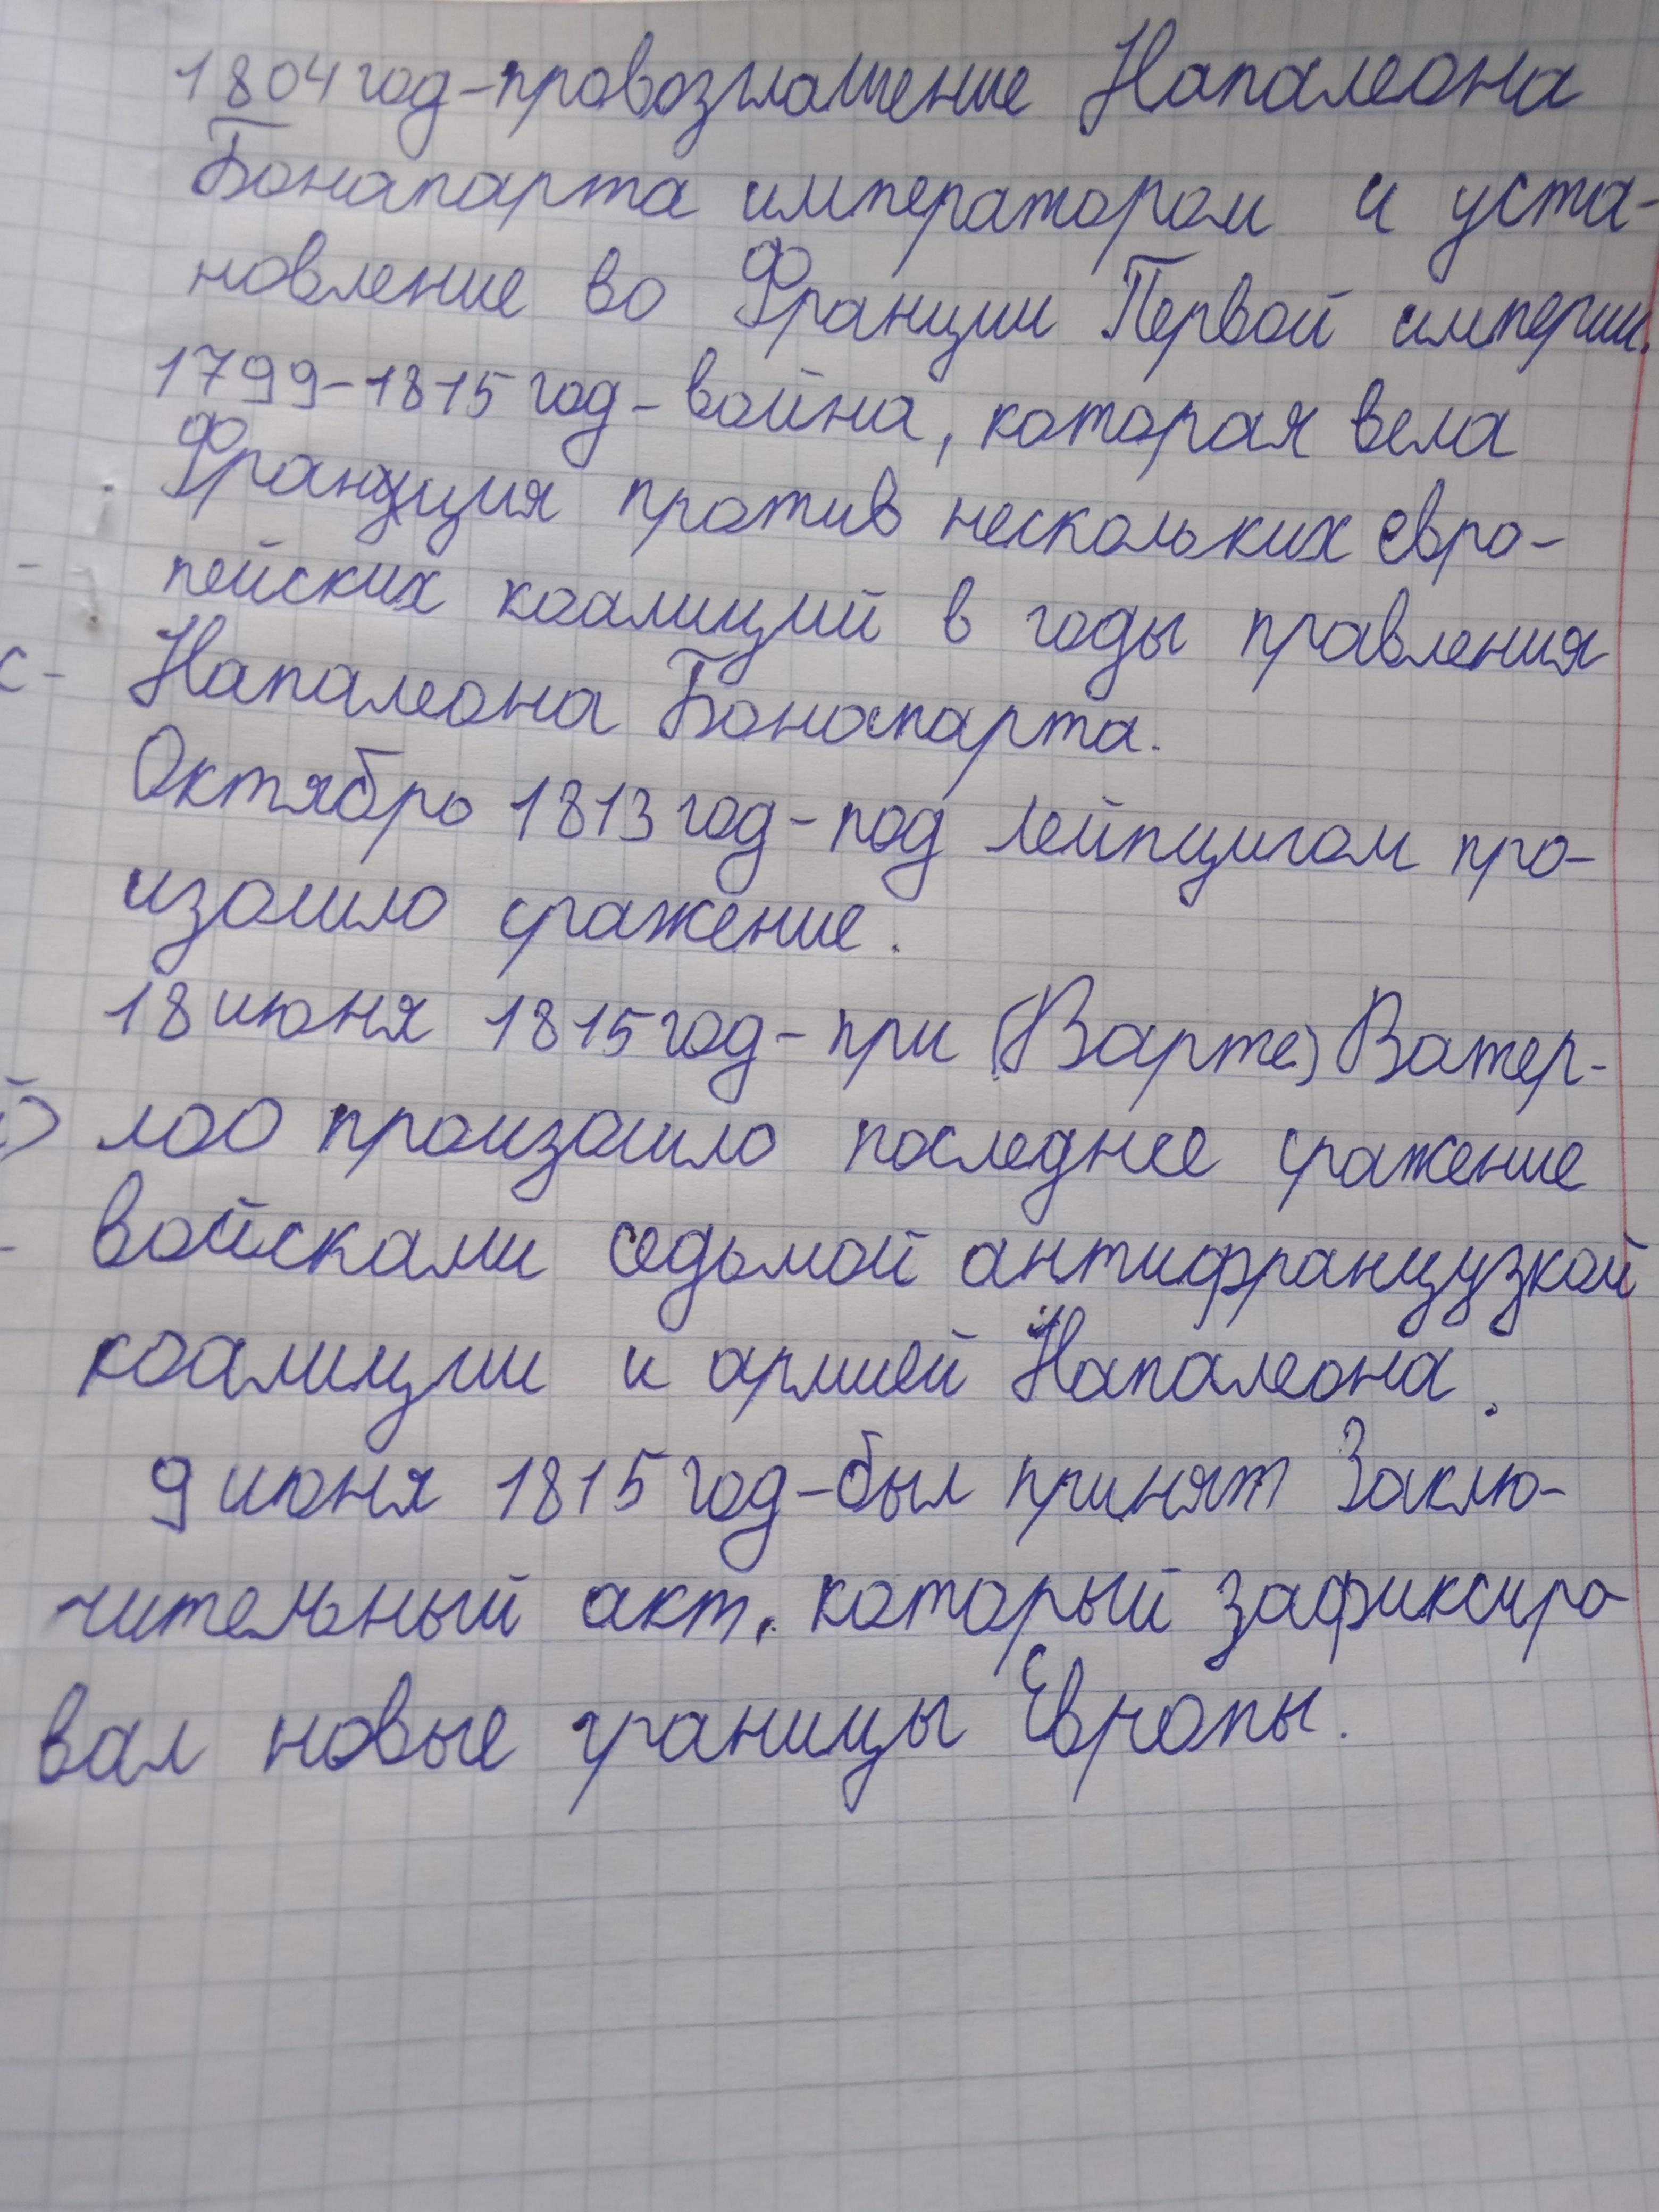 1804 год - провозглашение Напалеона
Бонапарта императором и уста-
новление во Франции Первой империи.
1799-1815 год - война, которая вела
Франция против нескольких евро-
пейских коалиций в годы правления
Напалеона Бонапарта.
Октябрь 1813 год - под Лейпцигом про-
изошло сражение.
18 июня 1815 год - при (Варте) Ватер-
лоо произошло последнее сражение
войсками седьмой антифранцузкой
коалиции и армией Напалеона.
9 июня 1815 год - был принят Заклю-
чительный акт, который зафиксиро
вал новые границы Европы.